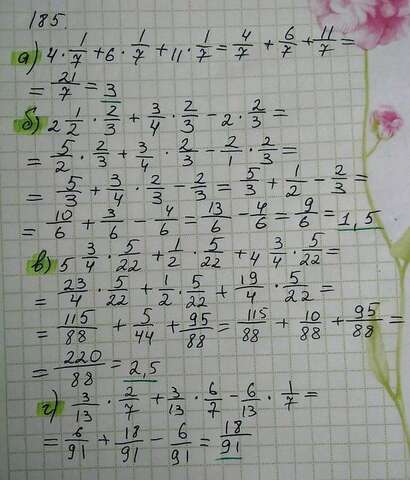 185.
а) 4 · 1/7 + 6 · 1/7 + 11 · 1/7 = 4/7 + 6/7 + 11/7 =
= 21/7 = 3
б) 2 1/2 · 2/3 + 3/4 · 2/3 - 2 · 2/3 =
= 5/2 · 2/3 + 3/4 · 2/3 - 2/1 · 2/3 =
= 5/3 + 3/4 · 2/3 - 2/3 = 5/3 + 1/2 - 2/3 =
= 10/6 + 3/6 - 4/6 = 13/6 - 4/6 = 9/6 = 1,5
в) 5 3/4 · 5/22 + 1/2 · 5/22 + 4 3/4 · 5/22 =
= 23/4 · 5/22 + 1/2 · 5/22 + 19/4 · 5/22 =
= 115/88 + 5/44 + 95/88 = 115/88 + 10/88 + 95/88 =
= 220/88 = 2,5
г) 3/13 · 2/7 + 3/13 · 6/7 - 6/13 · 1/7 =
= 6/91 + 18/91 - 6/91 = 18/91